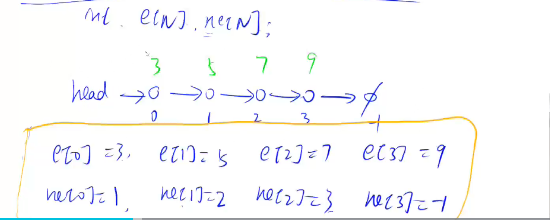 int e[N], ne[N];
3 5 7 9
head → 0 → 0 → 0 → 0 → ∅
0 1 2 3 -1
e[0] = 3, e[1] = 5 e[2] = 7 e[3] = 9
ne[0] = 1, ne[1] = 2 ne[2] = 3 ne[3] = -1